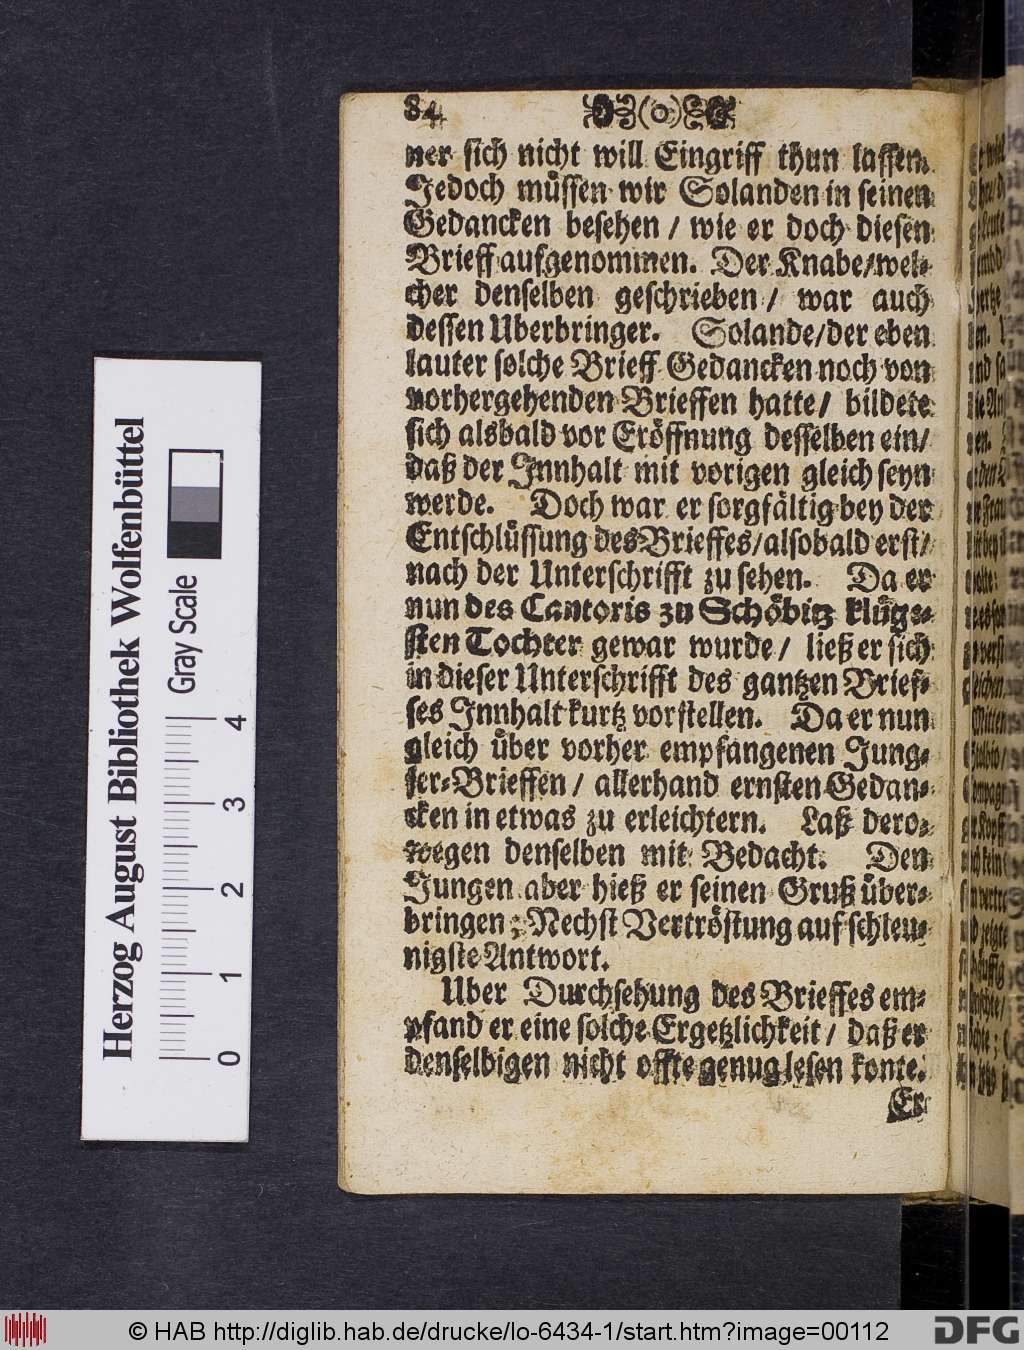 84
(o)
ner sich nicht will Eingriff thun lassen.
Jedoch müssen wir Solanden in seinen
Gedancken besehen / wie er doch diesen
Brieff aufgenommen. Der Knabe/wel-
cher denselben geschrieben / war auch
dessen Uberbringer. Solande/der eben
lauter solche Brieff Gedancken noch von
vorhergehenden Brieffen hatte / bildete
sich alsbald vor Eröffnung desselben ein/
daß der Innhalt mit vorigen gleich seyn
werde. Doch war er sorgfältig bey der
Entschlüssung des Brieffes/alsobald erst/
nach der Unterschrifft zu sehen. Da er
nun des Cantoris zu Schöbitz klüge-
sten Tochter gewar wurde / ließ er sich
in dieser Unterschrifft des gantzen Brief-
fes Innhalt kurtz vorstellen. Da er nun
gleich über vorher empfangenen Jung-
fer-Brieffen / allerhand ernsten Gedan-
cken in etwas zu erleichtern. Laß dero-
wegen denselben mit Bedacht. Den
Jungen aber hieß er seinen Gruß über-
bringen ; Nechst Vertröstung auf schleu-
nigste Antwort.
Uber Durchsehung des Brieffes em-
pfand er eine solche Ergetzlichkeit / daß er
denselbigen nicht offte genug lesen konte.
Er
Herzog August Bibliothek Wolfenbüttel
Gray Scale
0 1 2 3 4
© HAB http://diglib.hab.de/drucke/lo-6434-1/start.htm?image=00112
DFG